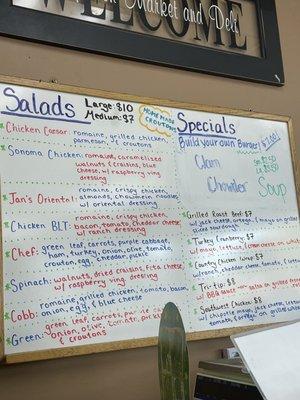 Market and Deli
WELCOME
Salads
Large: $10
Medium: $7
HOMEMADE
CROUTONS
Chicken Caesar: romaine, grilled chicken
parmesan, & croutons
Sonoma Chicken: romaine, caramelized
walnuts & craisins, blue
cheese, w/ raspberry ving
dressing
Jan's Oriental: romaine, crispy chicken,
almonds, chowmein noodles
w/ oriental dressing
Chicken BLT: romaine, crispy chicken,
bacon, tomato, cheddar cheese
w/ ranch dressing
Chef: green leaf, carrots, purple cabbage,
ham, turkey, onion, olive, tomato,
crouton, egg, cheddar, pickle
Spinach: walnuts, dried craisins, feta cheese,
w/ raspberry ving dressing
Cobb: romaine, grilled chicken, tomato, bacon,
onion, egg, & blue cheese
Green: green leaf, carrots,
onion, olive, tomato,
& croutons
Specials
Build your own Burger! $7.00!
Clam
Chowder
Soup
Grilled Roast Beef $9
w/ jack cheese, ortega, & mayo on grilled
sliced sourdough
Turkey Cranberry $8
Country Chicken Wrap $8
w/ ranch, cheddar cheese, tomato,
Tri-tip: $8
w/ BBQ sauce
Southwest Chicken $8
w/ chipotle mayo, jack cheese,
tomato,